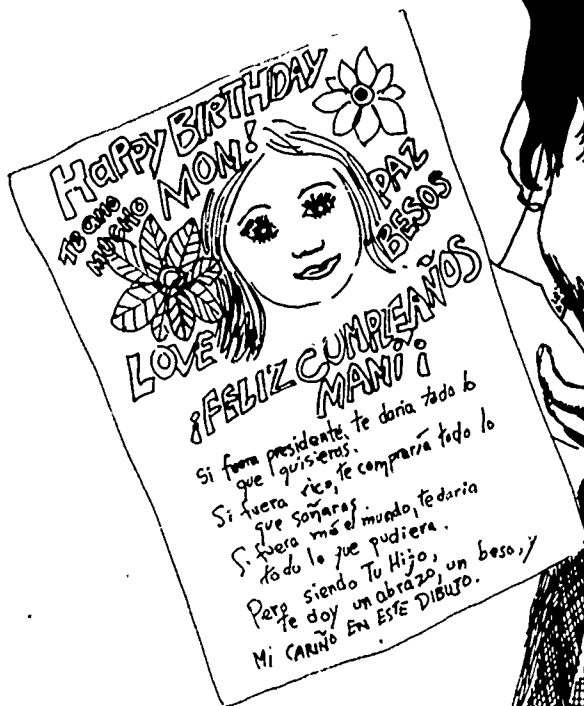 HAPPY BIRTHDAY
MOM!
Te amo
MUCHO
PAZ
BESOS
LOVE
¡FELIZ CUMPLEAÑOS
MAMI¡
Si fuera presidente, te daria todo lo
que quisieras.
Si fuera rico, te compraría todo lo
que soñaras.
Si fuera mío el mundo, te daria
todo lo que pudiera.
Pero siendo Tu Hijo,
te doy un abrazo, un beso, y
Mi CARIÑO EN ESTE DIBUJO.